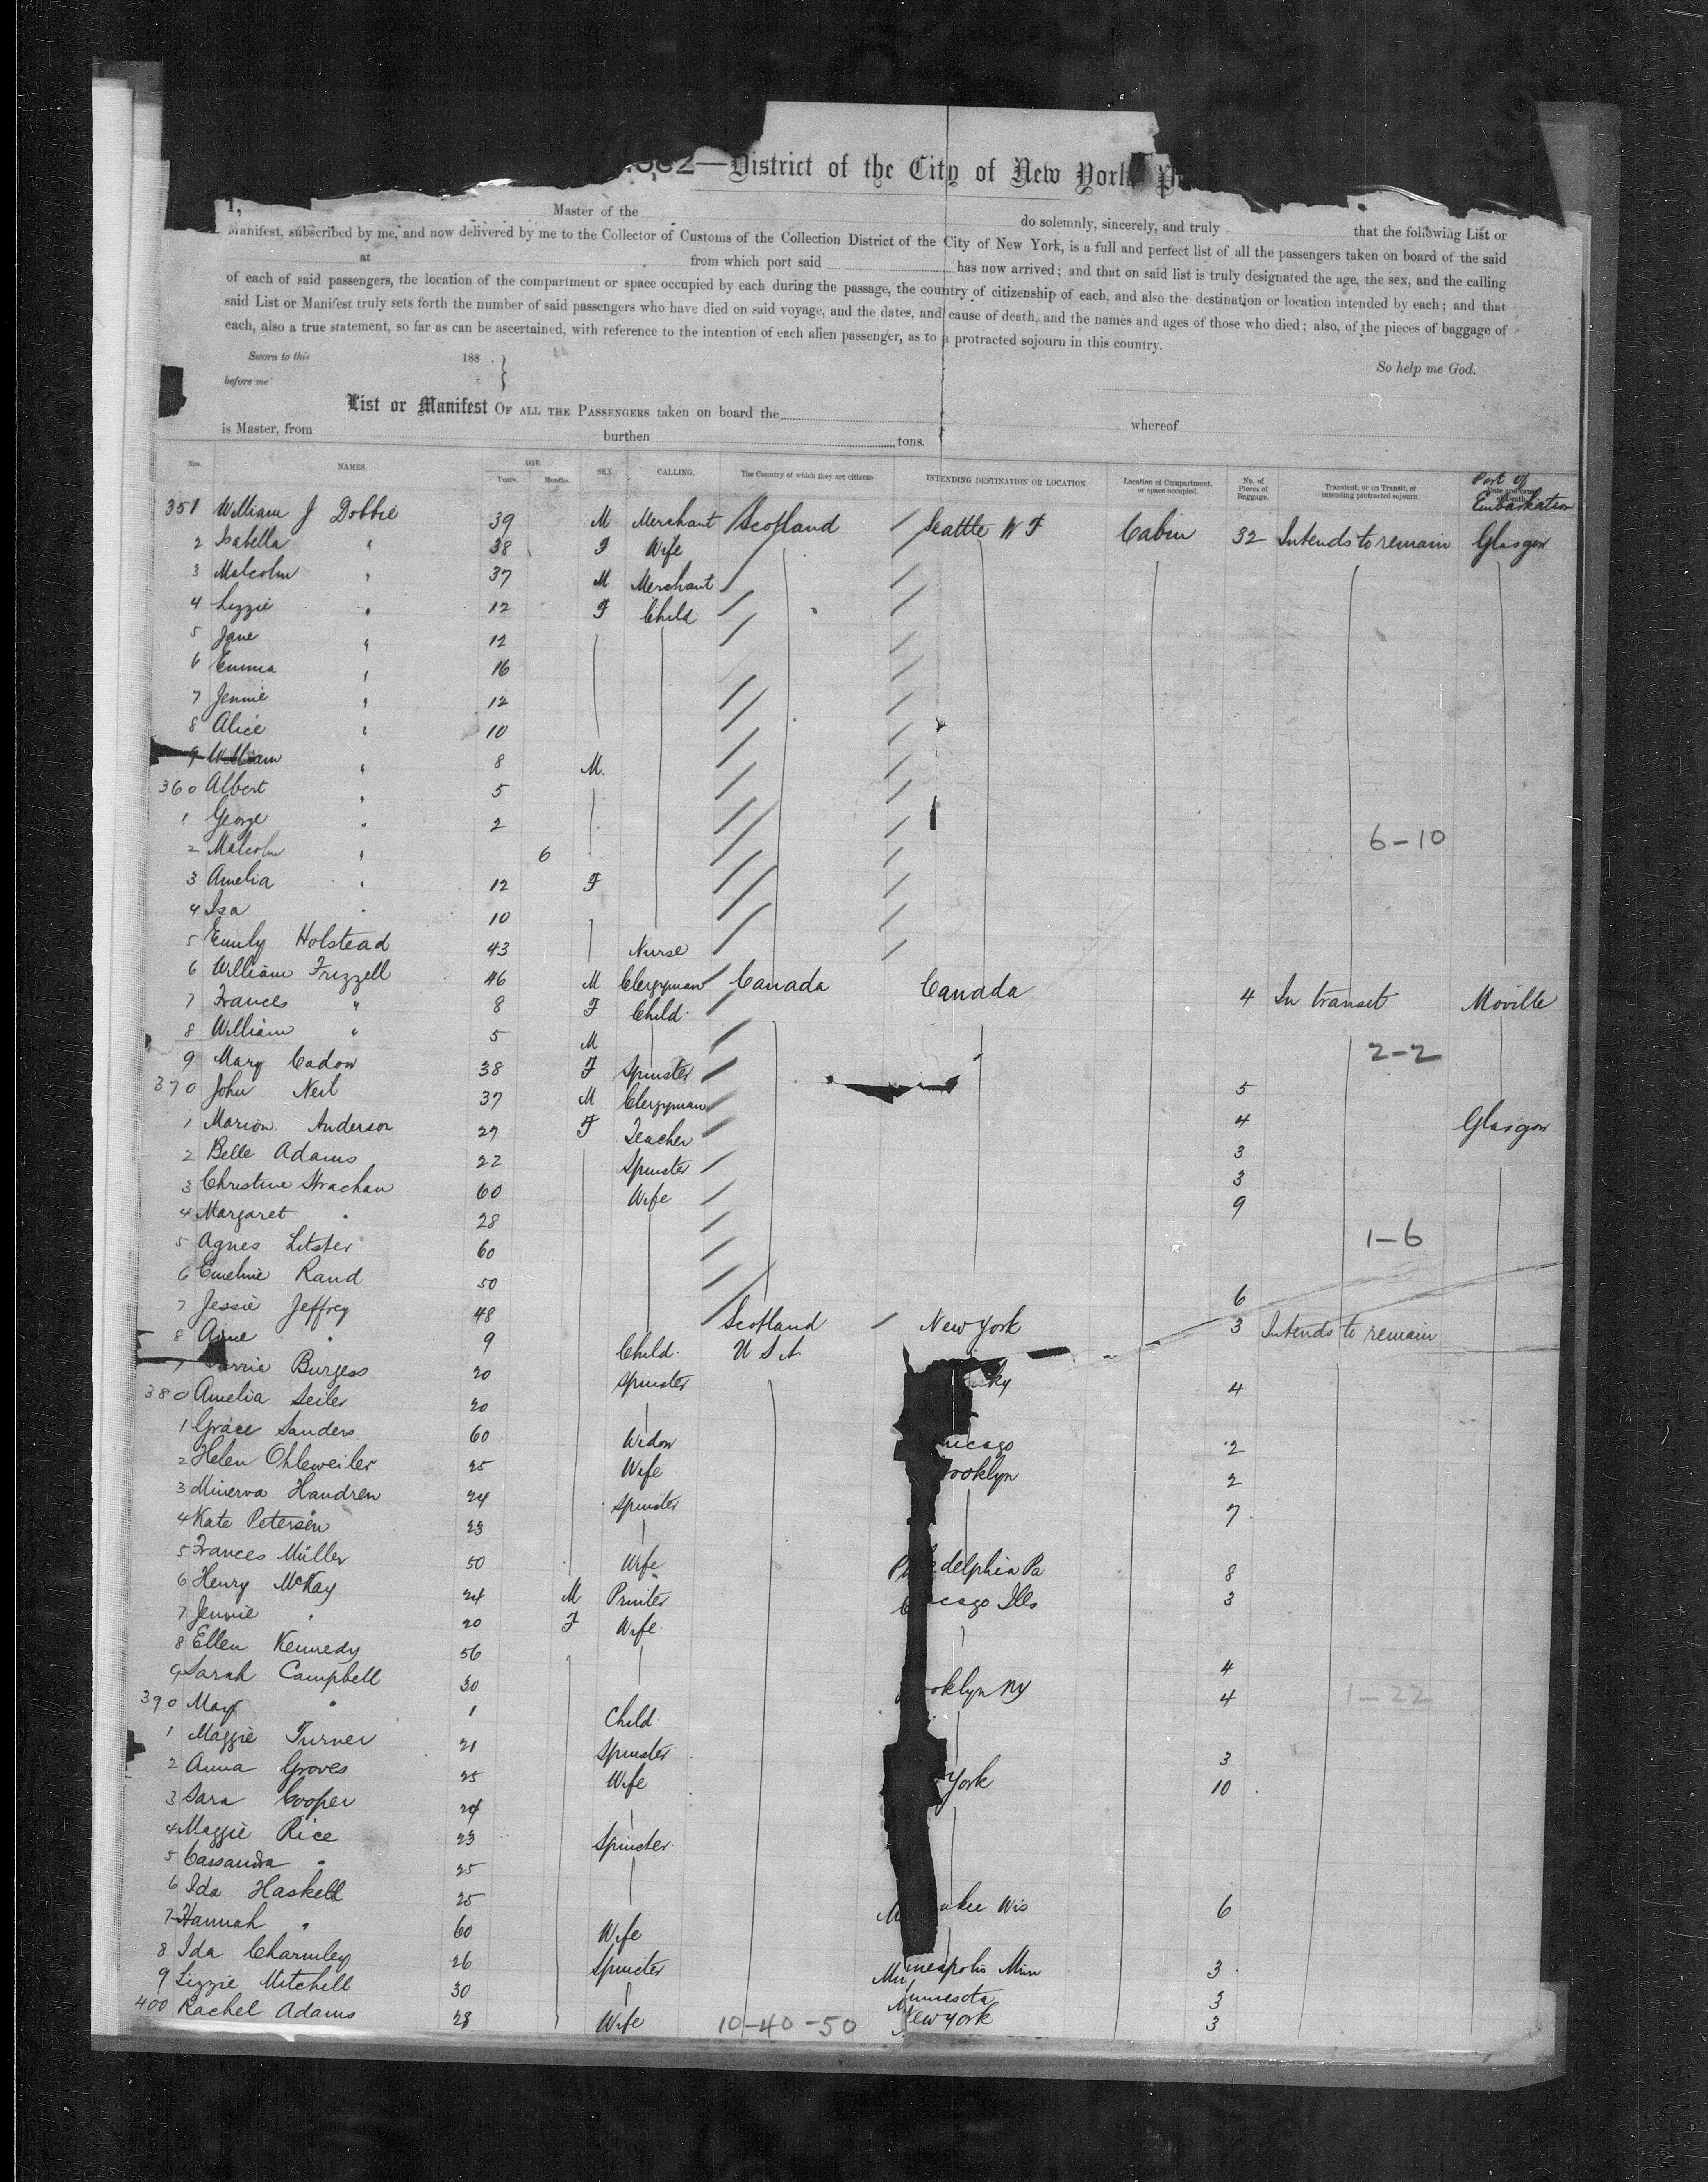 —District of the City of New York
I, Master of the do solemnly, sincerely, and truly that the following List or
Manifest, subscribed by me, and now delivered by me to the Collector of Customs of the Collection District of the City of New York, is a full and perfect list of all the passengers taken on board of the said
at from which port said has now arrived; and that on said list is truly designated the age, the sex, and the calling
of each of said passengers, the location of the compartment or space occupied by each during the passage, the country of citizenship of each, and also the destination or location intended by each; and that
said List or Manifest truly sets forth the number of said passengers who have died on said voyage, and the dates, and cause of death, and the names and ages of those who died; also, of the pieces of baggage of
each, also a true statement, so far as can be ascertained, with reference to the intention of each alien passenger, as to a protracted sojourn in this country.
Sworn to this 188 So help me God.
before me
List or Manifest OF ALL THE PASSENGERS taken on board the whereof
is Master, from burthen tons.
Nos. NAMES. AGE Years. Months. SEX. CALLING. The Country of which they are citizens INTENDING DESTINATION OR LOCATION. Location of Compartment, or space occupied. No. of Pieces of Baggage. Transient, or on Transit, or intending protracted sojourn Port of Embarkation
351 William J Dobbie 39 M Merchant Scotland Seattle W T Cabin 32 Intends to remain Glasgow
2 Isabella " 38 F Wife
3 Malcolm " 37 M Merchant
4 Lizzie " 12 F Child
5 Jane " 12
6 Emma " 16
7 Jennie " 12
8 Alice " 10
9 William " 8 M.
360 Albert " 5
1 George " 2
2 Malcolm " 6 6-10
3 Amelia " 12 F
4 Isa " 10
5 Emily Holstead 43 Nurse
6 William Frizzell 46 M Clergyman Canada Canada 4 In transit Moville
7 Frances " 8 F Child
8 William " 5 M
9 Mary Cadow 38 F Spinster 2-2
370 John Neil 37 M Clergyman 5
1 Marion Anderson 27 F Teacher 4 Glasgow
2 Belle Adams 22 Spinster 3
3 Christine Strachan 60 Wife 3
4 Margaret " 28 9
5 Agnes Litster 60 1-6
6 Emeline Rand 50
7 Jessie Jeffrey 48 Scotland New York 6
8 " 9 Child U S A 3 Intends to remain
Burgess 20 Spinster
380 Amelia Seiler 20 4
1 Grace Sanders 60 Widow
2 Helen Ohleweiler 25 Wife 2
3 Minerva Handren 24 Spinster 2
4 Kate Petersen 23 7
5 Frances Müller 50 Wife delphia Pa 8
6 Henry McKay 24 M Printer cago Ills 3
7 Jennie " 20 F Wife
8 Ellen Kennedy 56 4
9 Sarah Campbell 30 oklyn NY 4 1-22
390 May " 1 Child
1 Maggie Turner 21 Spinster 3
2 Anna Groves 25 Wife York 10
3 Sara Cooper 24
4 Maggie Rice 23 Spinster
5 Cassandra " 25
6 Ida Haskell 25 M ukee Wis 6
7 Hannah " 60 Wife
8 Ida Charmley 26 Spinster Minneapolis Min 3
9 Lizzie Mitchell 30 Minnesota 3
400 Rachel Adams 28 Wife 10-40-50 New York 3